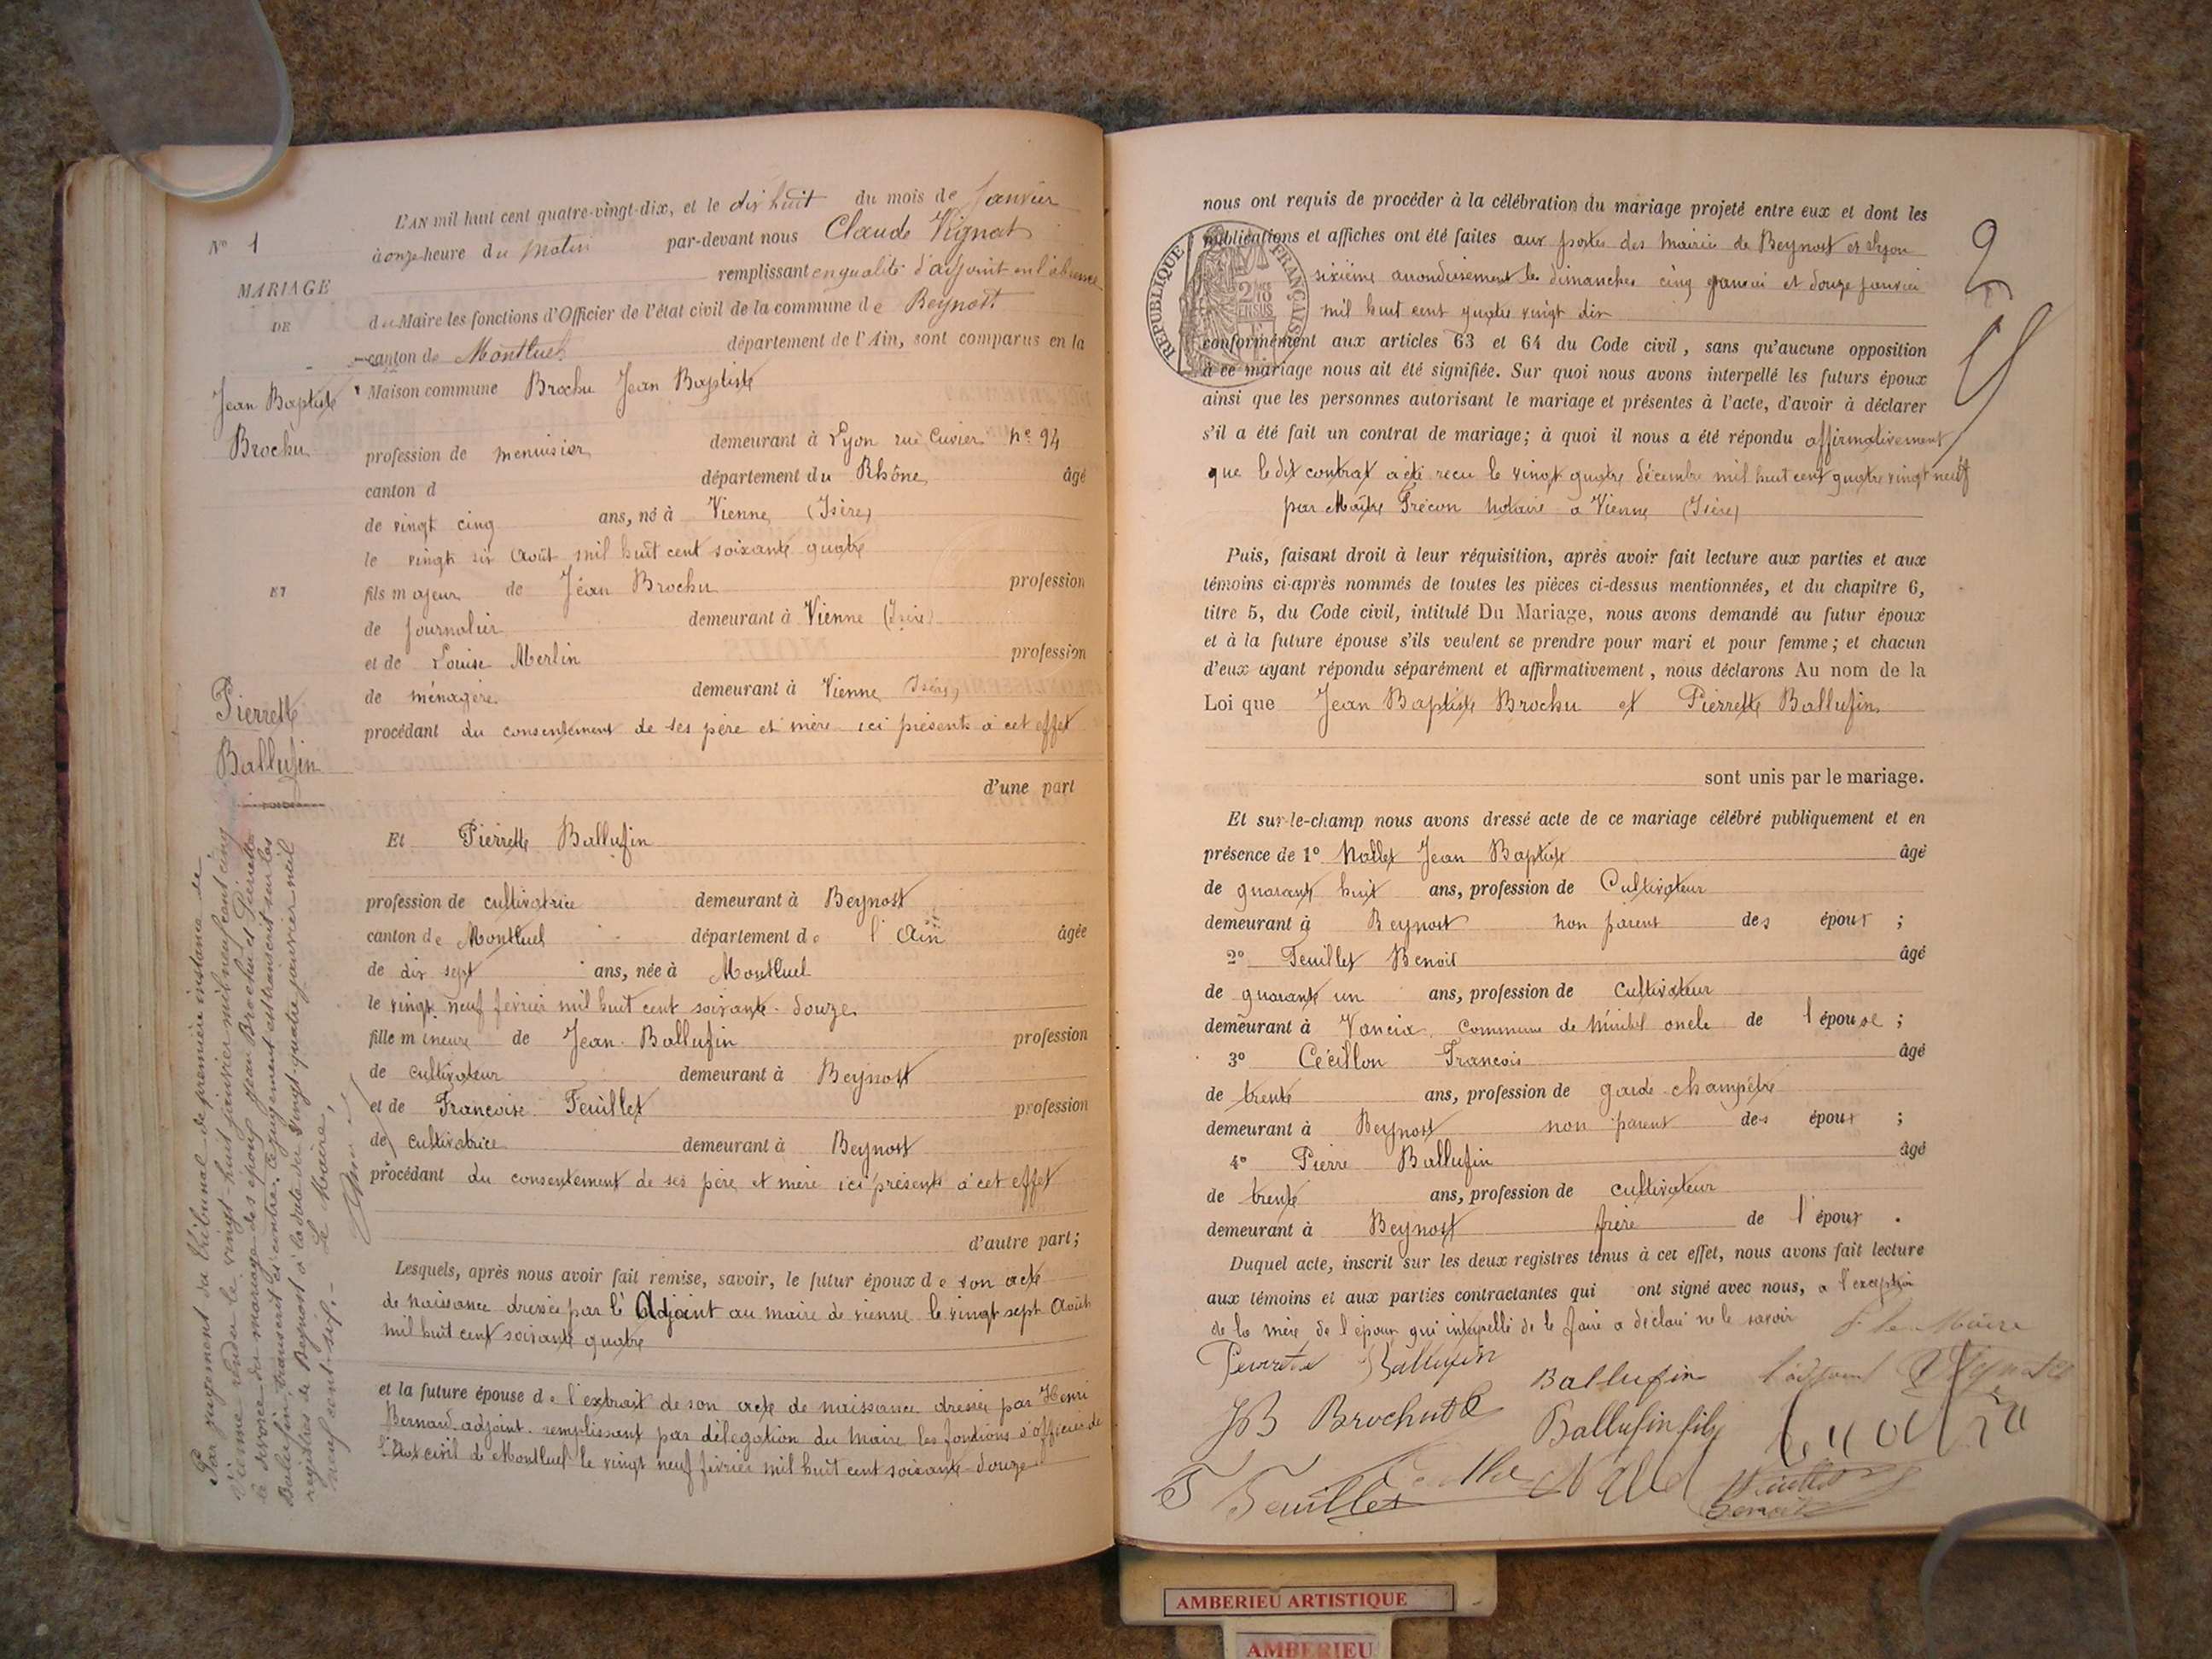 N° 1
MARIAGE
DE
Jean Baptiste
Brochu
ET
Pierrette
Ballufin
Par jugement du tribunal de première instance de
Vienne rendu le vingt-huit janvier mil neuf cent cinq
le divorce du mariage des époux Jean Brochu et Pierrette
Ballufin, transcrit ci contre. Ce jugement est transcrit sur les
registres de Beynost à la date du vingt-quatre janvier mil
neuf cent six. - Le Maire,
L'AN mil huit cent quatre-vingt-dix, et le dix huit du mois de Janvier
à onze heure du matin par-devant nous Claude Vignat
remplissant en qualité d'adjoint en l'absence
du Maire les fonctions d'Officier de l'état civil de la commune de Beynost
canton de Montluel département de l'Ain, sont comparus en la
Maison commune Brochu Jean Baptiste
profession de menuisier demeurant à Lyon rue Cuvier n° 94
canton d département du Rhône âgé
de vingt cinq ans, né à Vienne (Isère)
le vingt six Août mil huit cent soixante quatre
fils majeur de Jean Brochu profession
de journalier demeurant à Vienne (Isère)
et de Louise Merlin profession
de ménagère demeurant à Vienne (Isère)
procédant du consentement de ses père et mère ici présents à cet effet
d'une part
Et Pierrette Ballufin
profession de cultivatrice demeurant à Beynost
canton de Montluel département de l'Ain âgée
de dix sept ans, née à Montluel
le vingt neuf février mil huit cent soixante-douze
fille mineure de Jean Ballufin profession
de cultivateur demeurant à Beynost
et de Françoise Feuillet profession
de cultivatrice demeurant à Beynost
procédant du consentement de ses père et mère ici présents à cet effet
d'autre part;
Lesquels, après nous avoir fait remise, savoir, le futur époux de son acte
de naissance dressée par l'Adjoint au maire de vienne le vingt sept Août
mil huit cent soixante quatre
et la future épouse de l'extrait de son acte de naissance dressée par Henri
Bernard adjoint remplissant par délégation du Maire les fonctions d'officier de
l'état civil de Montluel le vingt neuf février mil huit cent soixante-douze
nous ont requis de procéder à la célébration du mariage projeté entre eux et dont les
publications et affiches ont été faites aux portes des mairies de Beynost et Lyon
sixième arrondissement les dimanches cinq janvier et douze janvier
mil huit cent quatre vingt dix
RÉPUBLIQUE FRANÇAISE
conformément aux articles 63 et 64 du Code civil, sans qu'aucune opposition
à ce mariage nous ait été signifiée. Sur quoi nous avons interpellé les futurs époux
ainsi que les personnes autorisant le mariage et présentes à l'acte, d'avoir à déclarer
s'il a été fait un contrat de mariage; à quoi il nous a été répondu affirmativement
que le dit contrat a été recu le vingt quatre décembre mil huit cent quatre vingt neuf
par Maître Frécon Notaire à Vienne (Isère)
Puis, faisant droit à leur réquisition, après avoir fait lecture aux parties et aux
témoins ci-après nommés de toutes les pièces ci-dessus mentionnées, et du chapitre 6,
titre 5, du Code civil, intitulé Du Mariage, nous avons demandé au futur époux
et à la future épouse s'ils veulent se prendre pour mari et pour femme; et chacun
d'eux ayant répondu séparément et affirmativement, nous déclarons Au nom de la
Loi que Jean Baptiste Brochu et Pierrette Ballufin
sont unis par le mariage.
Et sur-le-champ nous avons dressé acte de ce mariage célébré publiquement et en
présence de 1° Nallet Jean Baptiste âgé
de quarante huit ans, profession de Cultivateur
demeurant à Beynost non parent des époux ;
2° Feuillet Benoit âgé
de quarante un ans, profession de cultivateur
demeurant à Vancia commune de Miribel oncle de l'épouse ;
3° Cécillon François âgé
de trente ans, profession de garde-champêtre
demeurant à Beynost non parent des époux ;
4° Pierre Ballufin âgé
de trente ans, profession de cultivateur
demeurant à Beynost frère de l'époux .
Duquel acte, inscrit sur les deux registres tenus à cet effet, nous avons fait lecture
aux témoins et aux parties contractantes qui ont signé avec nous, a l'exception
de la mère de l'époux qui interpellé de le faire a déclaré ne le savoir
P. le Maire
Pierrette Ballufin Ballufin l'adjoint Vignat
JB Brochu Ballufin fils
F Feuillet Feuillet
Benoit
AMBERIEU ARTISTIQUE
AMBERIEU